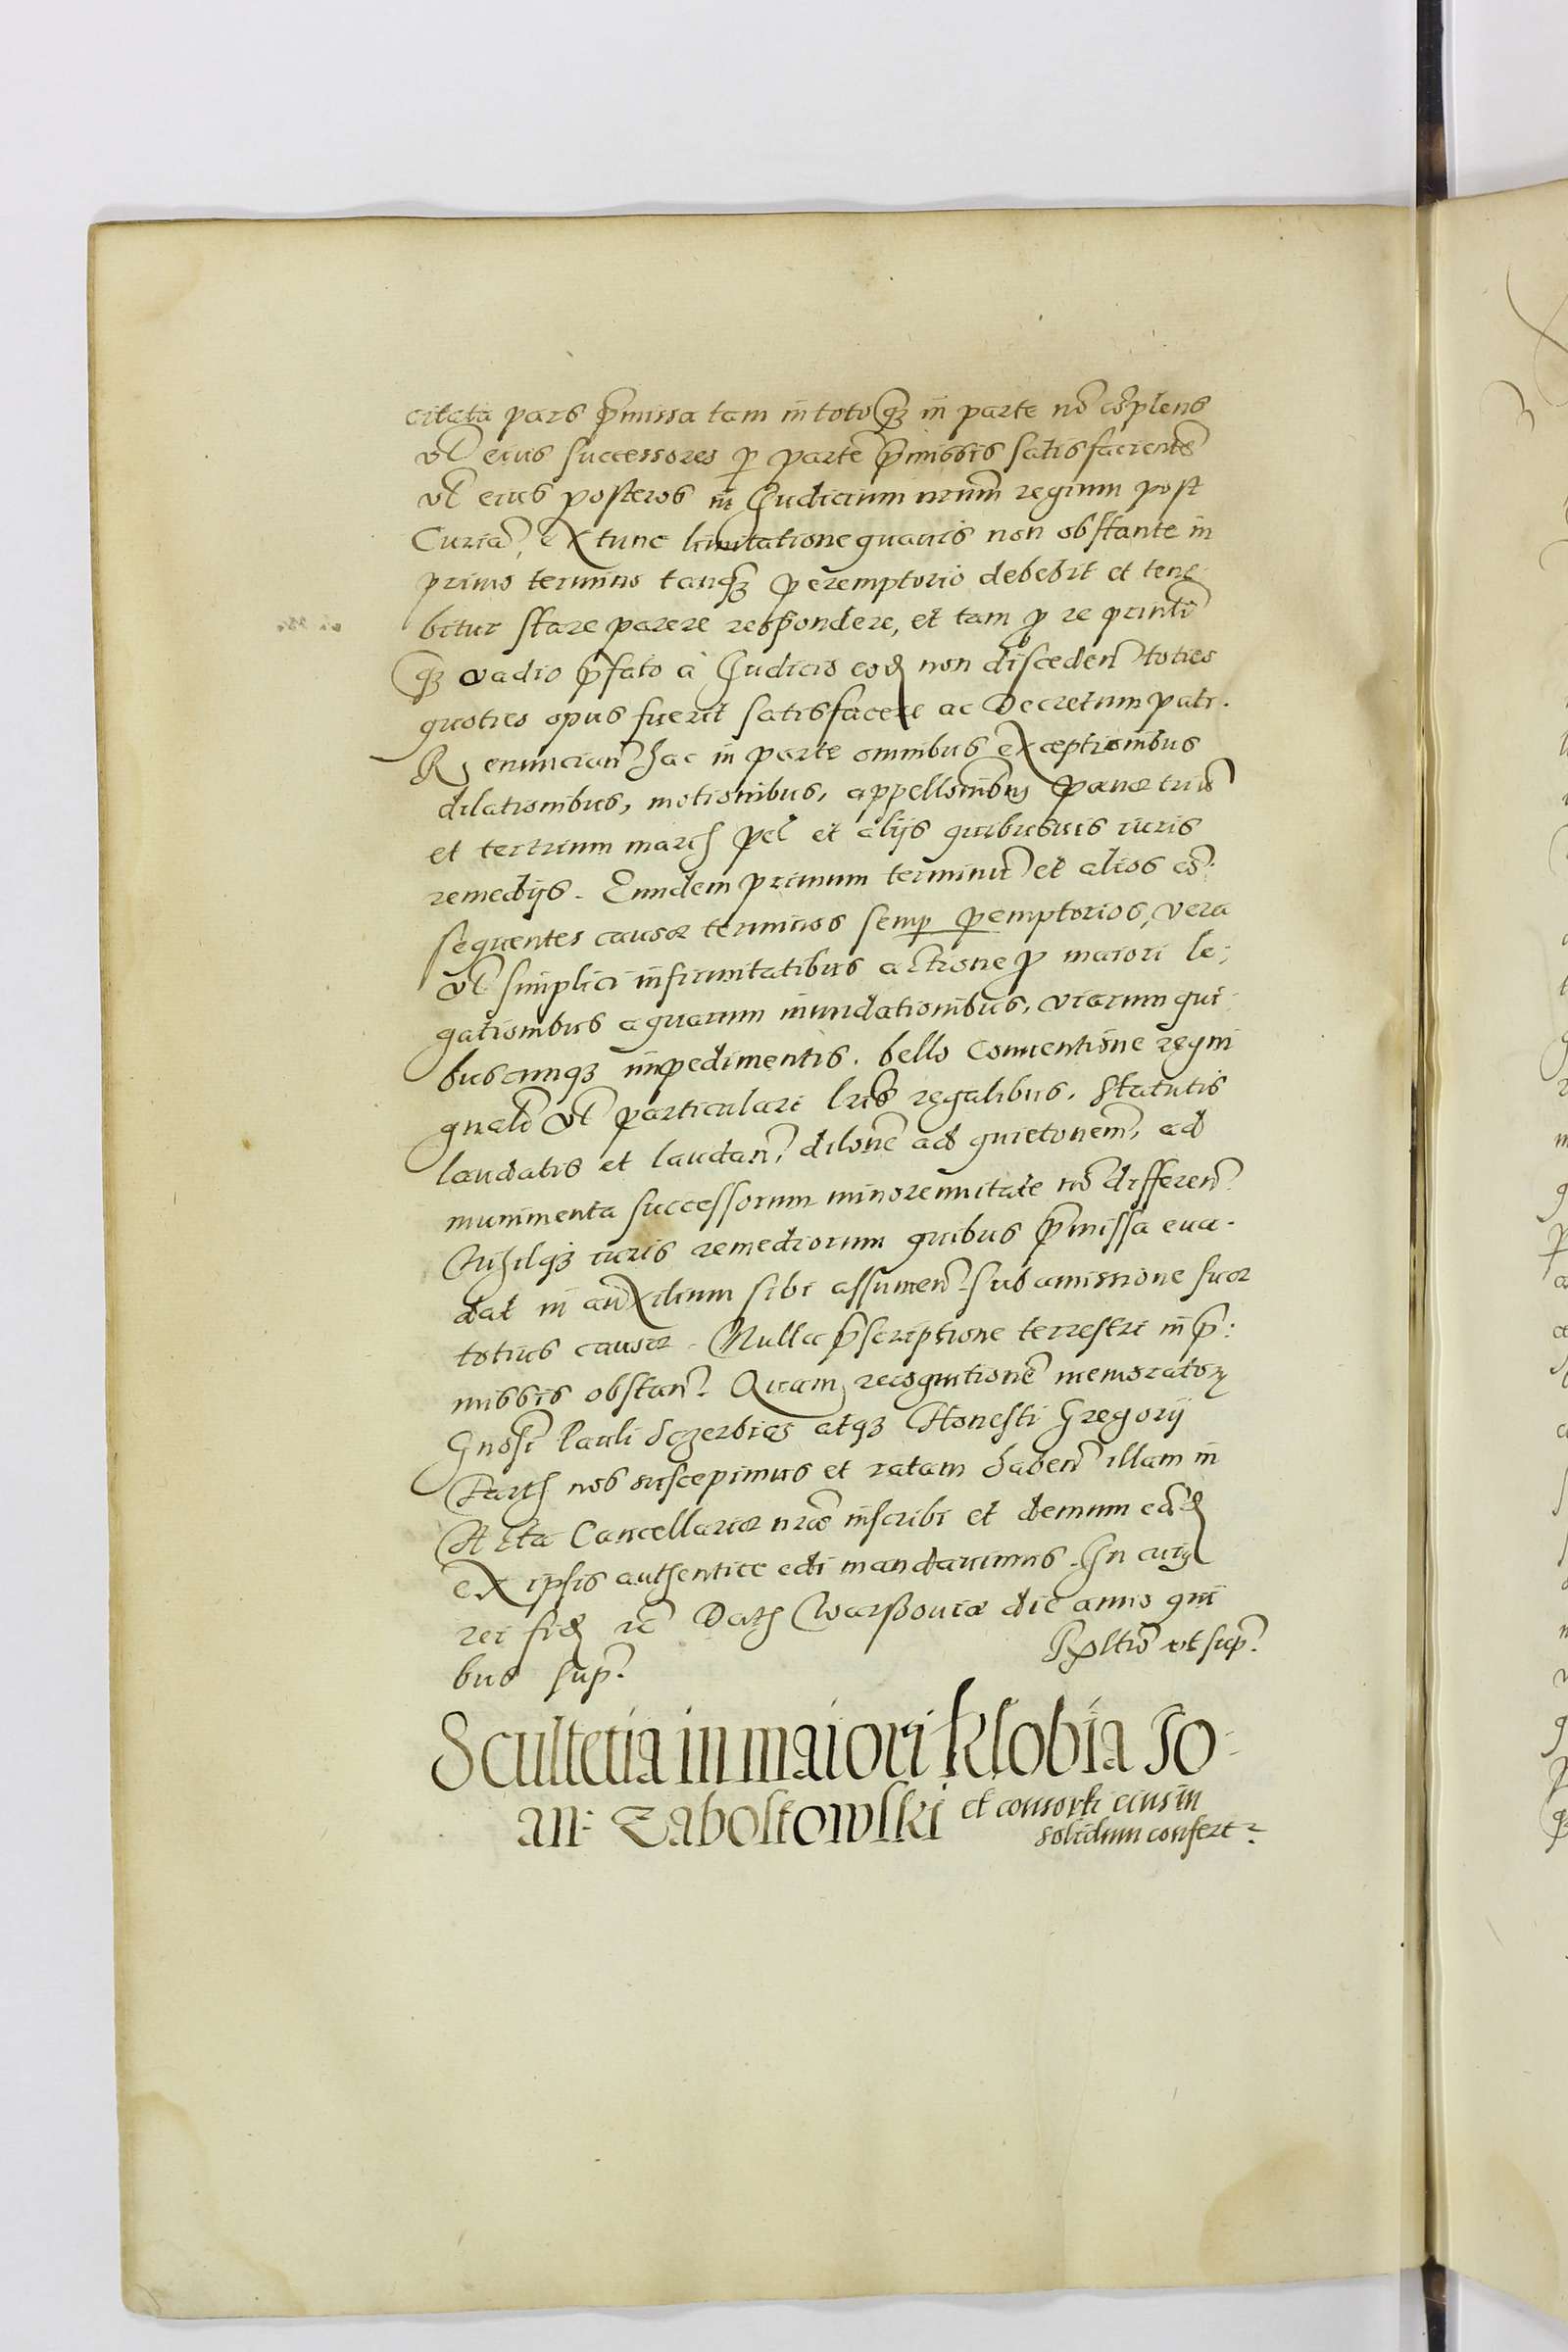 citata pars p̃missa tam in toto q̃ꝫ in parte nõ cõplens
vl̃ eius successores ꝑ partẽ p̃missis satisfacientẽ
vl̃ eius posteros in Judicium nr̃um regium post
Curiã, ex tunc limitatione quauis non obstante in
primo termino tanq̃ꝫ peremptorio debebit et tene
bitur stare parere respondere, et tam ꝓ re prin̄li
q̃ꝫ vadio p̃fato à Judicio eod̃ non discedeñ toties
quoties opus fuerit satisfacere ac Decretum pati.
Renuncian̄ hac in parte omnibus exceptionibus
dilationibus, motionibus, appell̃onibus pœnæ triũ
et tertium march pol̃ et alijs quibusuis iuris
remedijs. Eundem primum terminũ et alios cõ:
sequentes causæ terminos semꝑ ꝑemptorios, vera
vl̃ simplici infirmitatibus actione ꝓ maiori le:
gationibus aquarum inundationibus, viarum qui
buscunqꝫ impedimentis, bello Conuentione regni
gnali vl̃ particulari lr̃is regalibus, Statutis
laudatis et laudan̄, dilonẽ ad quietonem, ad
munimenta successorum minorennitate nõ differen̄
Nihilqꝫ iuris remediorum quibus p̃missa eua-
dat in auxilium sibi assumen̄ sub amissione suæ
totius causæ. Nulla p̃scriptione terrestri in p̃:
missis obstan̄. Quam recognitionẽ memoratoꝝ
Gnosi Pauli Sczerbicz atqꝫ Honesti Gregorij
nos suscepimus et ratam haben̄ illam in
Acta Cancellariæ nr̃æ inscribi et demum eãd̃
ex ipsis authentice edi mandauimus. In cuiꝫ
rei fid̃ rc̃ Dat̃ Warßouiæ die anno qui
bus sup̃.
Rltiõ vt sup̃.
Scultetia in maiori Klobia Jo-
an: Zabostowski et consorti eius in
solidum confert~